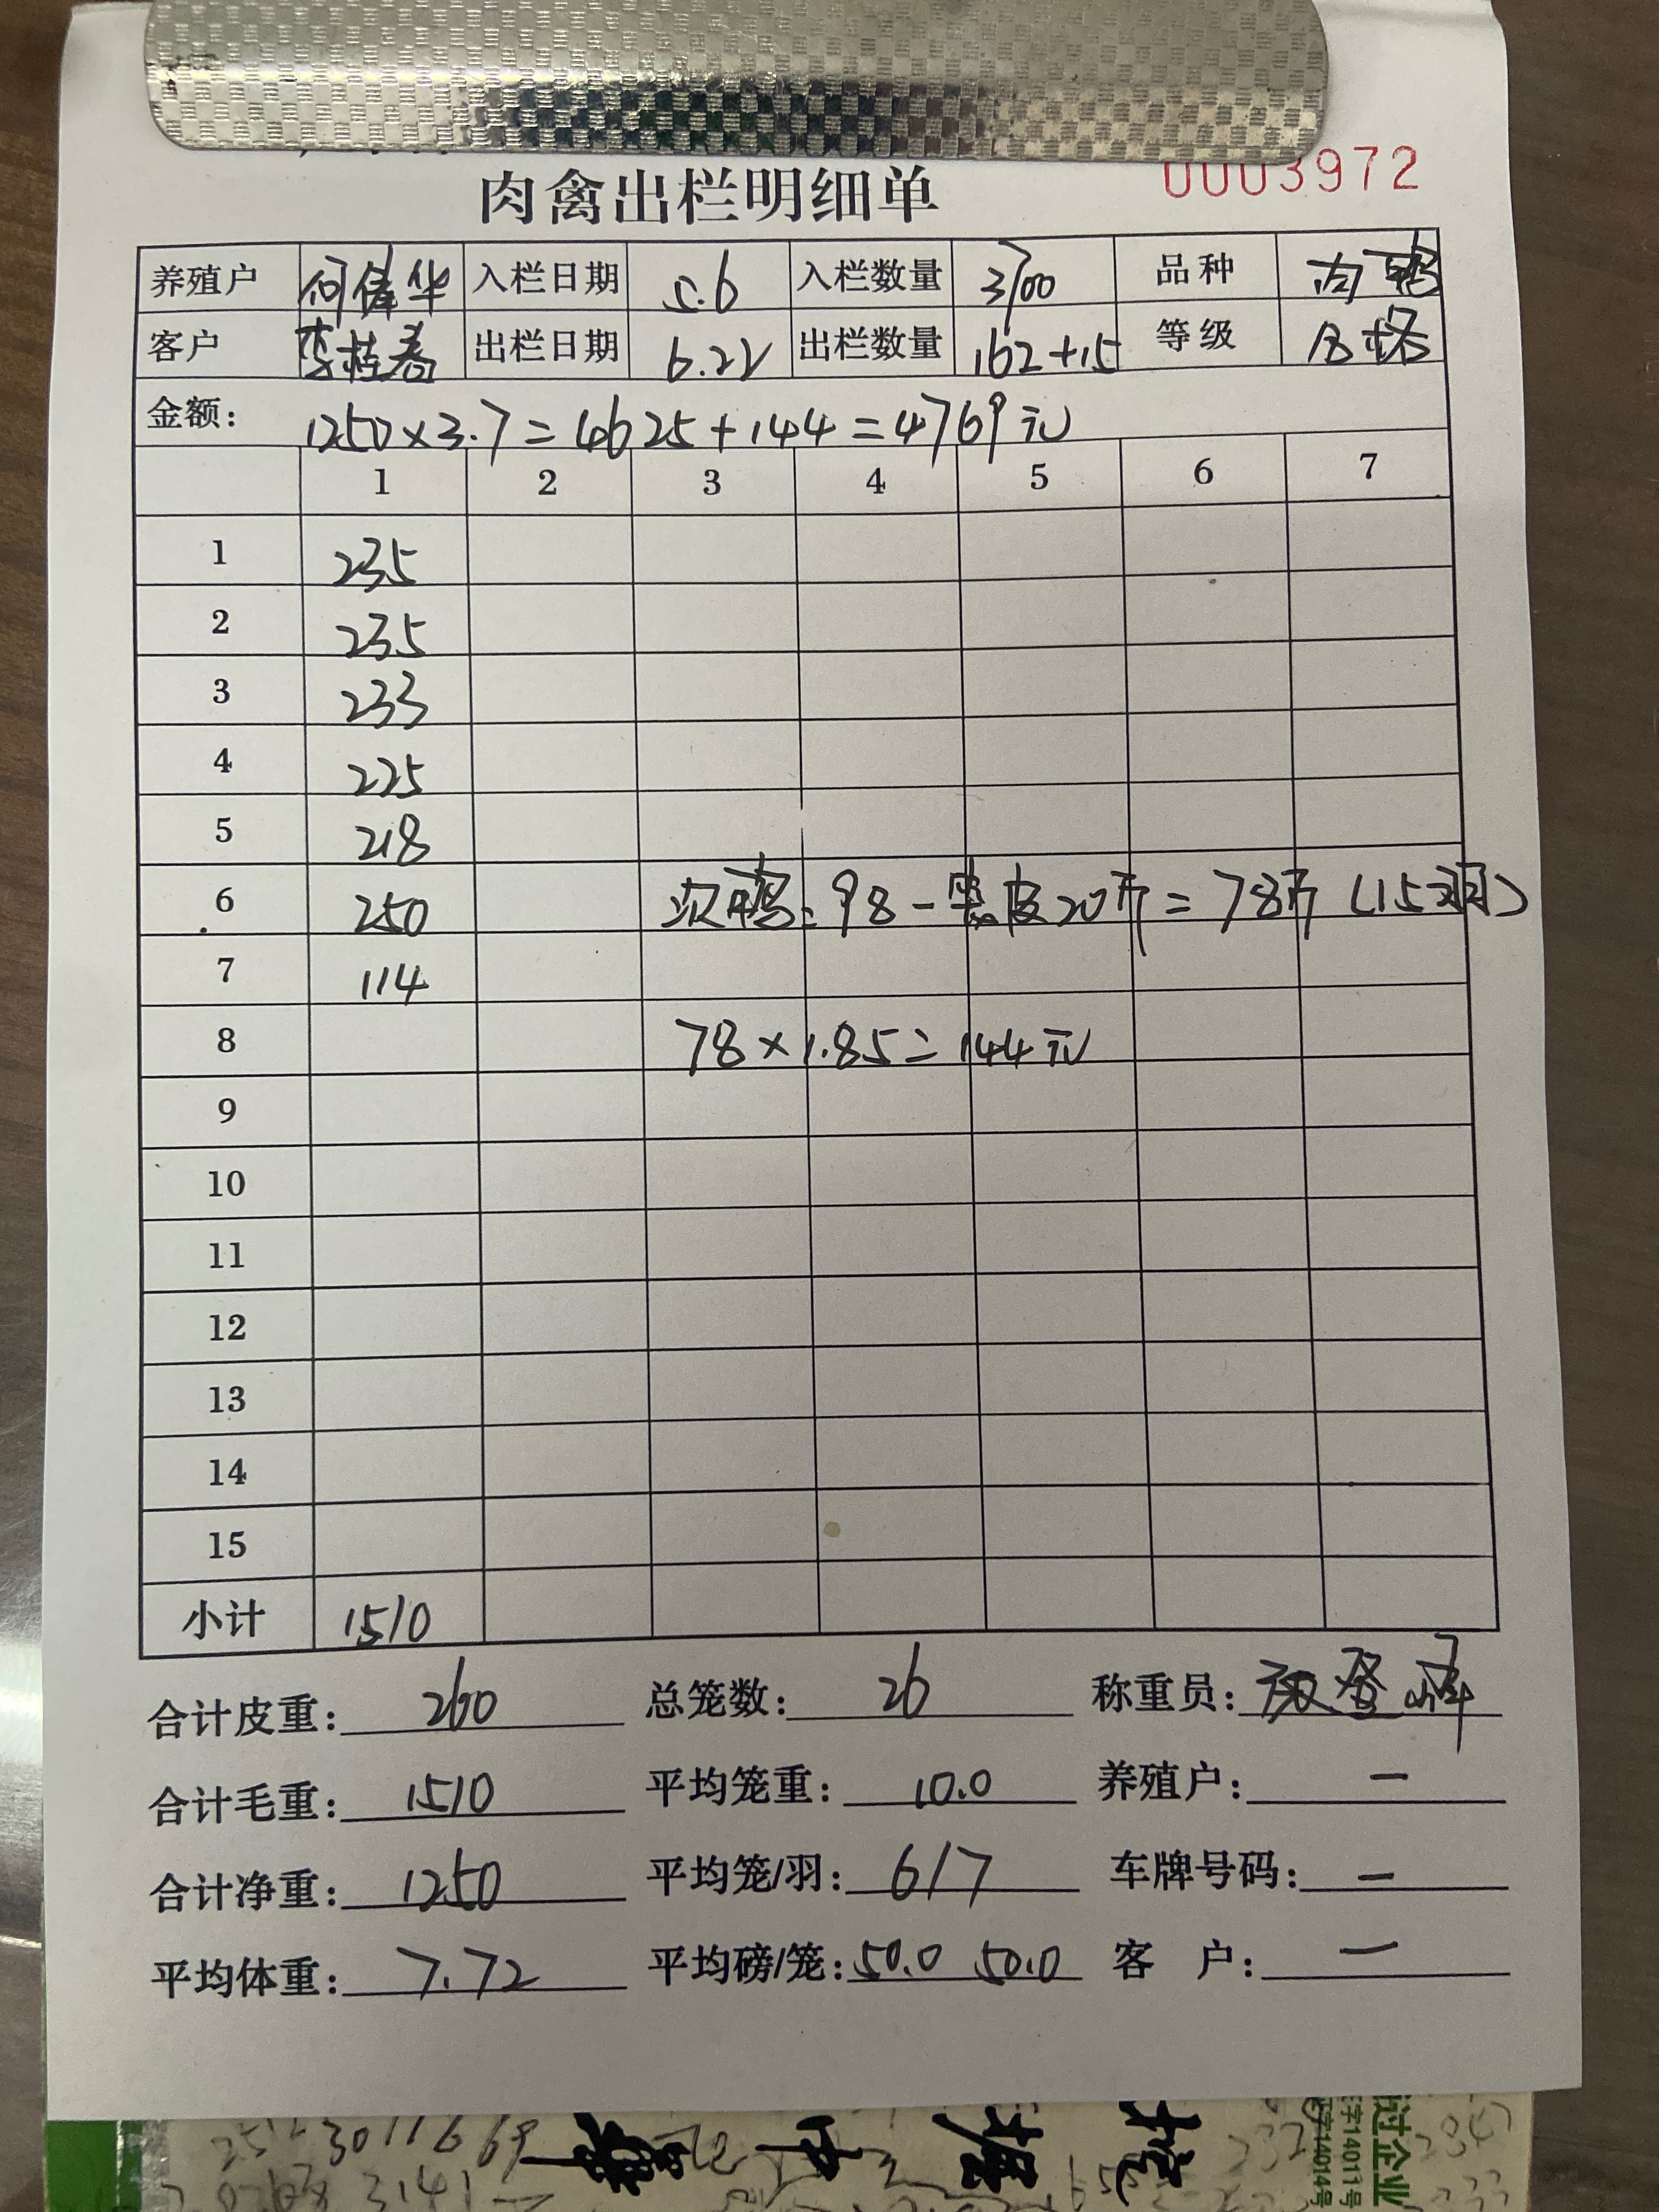 0003972
肉禽出栏明细单
养殖户 何伟华 入栏日期 5.6 入栏数量 3700 品种 肉鸭
客户 李桂春 出栏日期 6.22 出栏数量 162+15 等级 合格
金额: 1250×3.7=4625+144=4769元
1 2 3 4 5 6 7
1 235
2 235
3 233
4 225
5 218
6 250 次鸭:98-笼皮20斤=78斤(15羽)
7 114
8 78×1.85=144元
9
10
11
12
13
14
15
小计 1510
合计皮重: 260 总笼数: 26 称重员:
合计毛重: 1510 平均笼重: 10.0 养殖户: —
合计净重: 1250 平均笼/羽: 6/7 车牌号码: —
平均体重: 7.72 平均磅/笼: 50.0 50.0 客 户: —
过企业
字14011号
字14014号